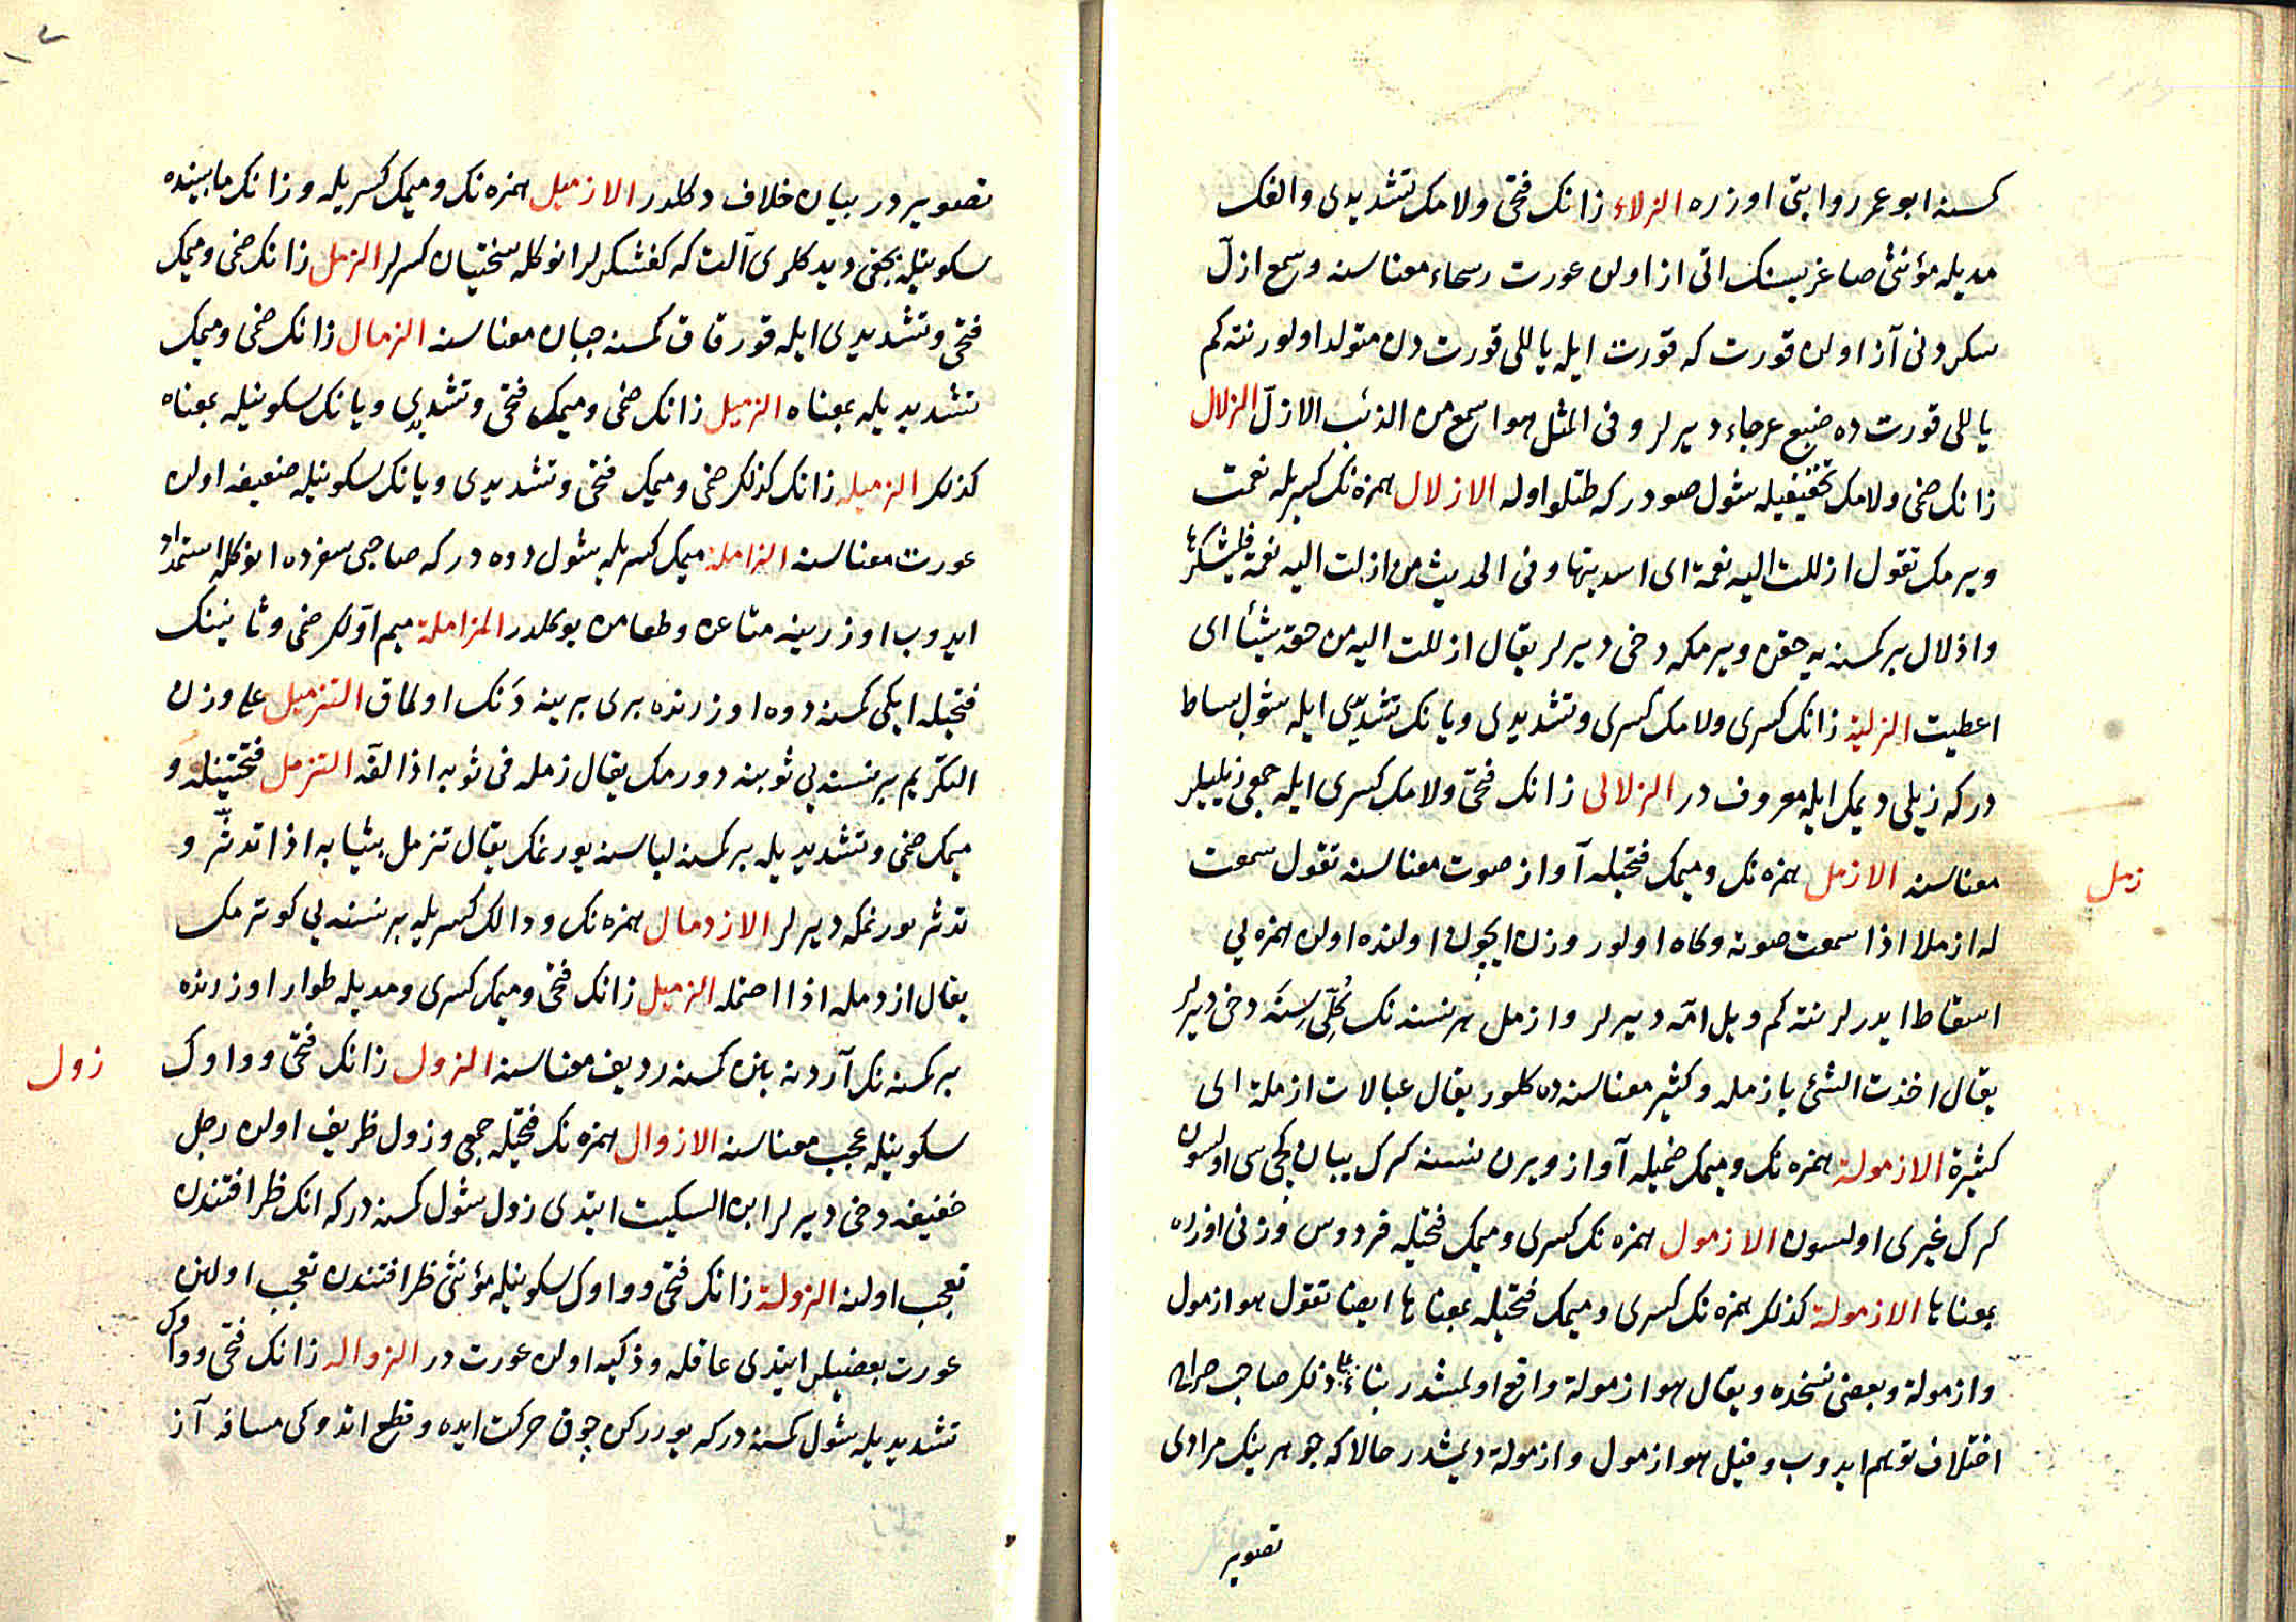 كمسنه ابو عمر روايتى اوزره الزلاء زانك فتحى ولامك تشديدى والفك
مديله مؤنثى صاغريسنك اتى از اولن عورت رسحاء معناسنه وسمع ازلّ
سكردنى آز اولن قورت كه قورت ايله ياللى قورت دن متولد اولور نته كم
ياللى قورت ده ضبع عرجاء ديرلر وفى المثل هو اسمع من الذئب الازلّ الزلال
زانك ضمى ولامك تخفيفيله شول صودر كه طتلو اوله الازلال همزه نك كسريله نعمت
ويرمك تقول ازللت اليه نعمة اى اسديتها وفى الحديث من ازلت اليه نعمة فليشكرها
وازلال بر كمسنه يه حقن ويرمكه دخى ديرلر يقال ازللت اليه من حقه شيئا اى
اعطيت الزلية زانك كسرى ولامك كسرى وتشديدى ويانك تشديدى ايله شول بساط
در كه زيلى ديمك ايله معروف در الزلالى زانك فتحى ولامك كسرى ايله جمعى زيليلر
زمل
معناسنه الازمل همزه نك وميمك فتحيله آواز صوت معناسنه تقول سمعت
له ازملا اذا سمعت صوته وكاه اولور وزن ايچون اولنده اولن همزه يى
اسقاط ايدرلر نته كم ويل امّه ديرلر وازمل هر نسنه نك كُلِّى سِنَه دخى ديرلر
يقال اخذت الشئ بازمله وكثير معناسنه ده كلور يقال عيالات ازملة اى
كثيرة الازمولة همزه نك وميمك ضميله آواز ويرن نسنه كرك يبان كچى سى اولسون
كرك غيرى اولسون الازمول همزه نك كسرى وميمك فتحيله فردوس وزنى اوزره
بمعناها الازمولة كذلك همزه نك كسرى وميمك فتحيله بمعناها ايضا تقول هو ازمول
وازمولة وبعضى نسخه ده ويقال هو ازمولة واقع اولمشدر بناء على ذلك صاحب صراح
اختلاف توهم ايدوب وقيل هو ازمول وازمولة ديمشدر حالا كه جوهرينك مرادى
تصوير
تصويردر بيان خلاف دكلدر الازميل همزه نك وميمك كسريله وزانك مابينده
سكونيله بچقى ديدكلرى آلت كه كفشكرلر انوكله سختيان كسرلر الزمل زانك ضمى وميمك
فتحى وتشديدى ايله قورقاق كمسنه جبان معناسنه الزمال زانك ضمى وميمك
تشديديله بمعناه الزميل زانك ضمى وميمك فتحى وتشديدى ويانك سكونيله بمعناه
كذلك الزميله زانك كذلك ضمى وميمك فتحى وتشديدى ويانك سكونيله ضعيفه اولن
عورت معناسنه الزاملة ميمك كسريله شول دوه در كه صاحبى سفرده انوكله استمداد
ايدوب اوزرينه متاعن وطعامن يوكلدر المزاملة ميم اوّلك ضمى وثانينك
فتحيله ايكى كمسنه دوه اوزرنده برى برينه دَنك اولماق التزميل على وزن
التكريم بر نسنه يى ثوبينه دورمك يقال زمله فى ثوبه اذا لفّه التزمل فتحتينله و
ميمك ضمى وتشديديله بر كمسنه لباسنه بورنمك يقال تزمل بثيابه اذا تدثّر و
تدثر بورنمكه ديرلر الازدمال همزه نك ودالك كسريله بر نسنه يى كوترمك
يقال ازدمله اذا احتمله الزميل زانك فتحى وميمك كسرى ومديله طوار اوزرنده
زول
بر كمسنه نك آردنه بنن كمسنه رديف معناسنه الزول زانك فتحى وواوك
سكونيله عجب معناسنه الازوال همزه نك فتحيله جمعى وزول ظريف اولن رجل
خفيفه دخى ديرلر ابن السكيت ايتدى زول شول كمسنه در كه انك ظرافتندن
تعجب اولنه الزولة زانك فتحى وواوك سكونيله مؤنثى ظرافتندن تعجب اولنن
عورت بعضيلر ايتدى عاقله وذكيه اولن عورت در الزواله زانك فتحى وواوك
تشديديله شول كمسنه در كه يوررکن چوق حركت ايده وقطع اتدوكى مسافه آز